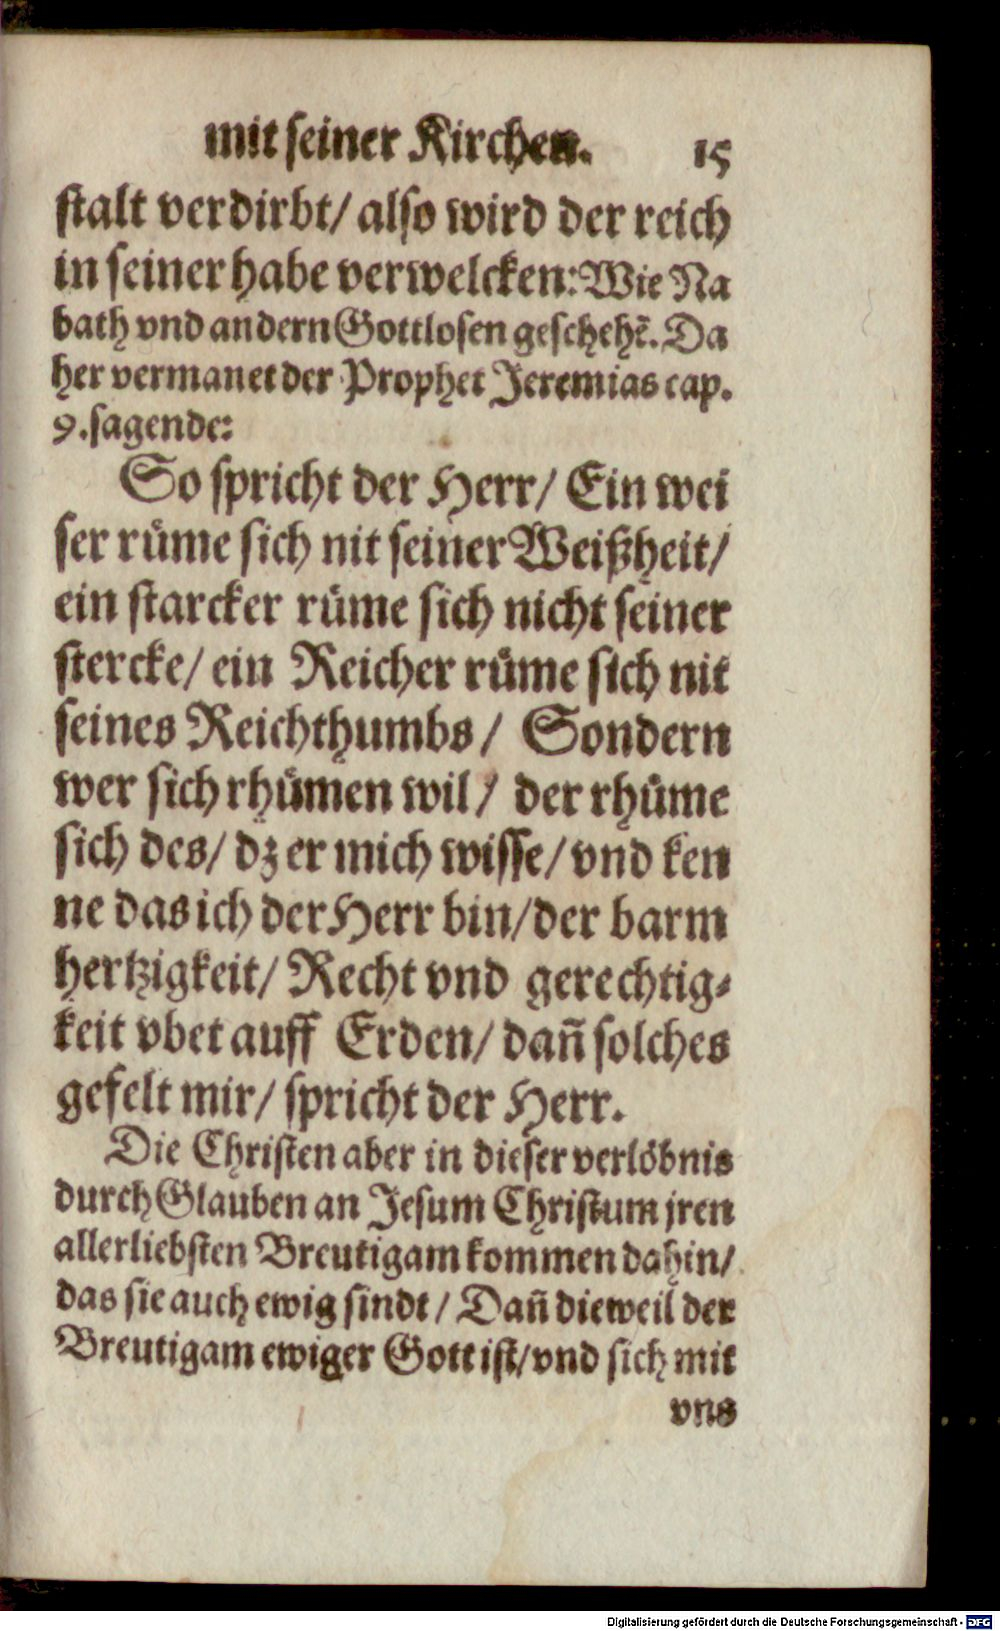 mit seiner Kirchen. 15
stalt verdirbt/ also wird der reich
in seiner habe verwelcken: Wie Na
bath vnd andern Gottlosen geschehẽ. Da
her vermanet der Prophet Jeremias cap.
9. sagende:
So spricht der Herr/ Ein wei
ser rüme sich nit seiner Weißheit/
ein starcker rüme sich nicht seiner
stercke/ ein Reicher rüme sich nit
seines Reichthumbs/ Sondern
wer sich rhümen wil/ der rhüme
sich des/ dz er mich wisse/ vnd ken
ne das ich der Herr bin/ der barm
hertzigkeit/ Recht vnd gerechtig-
keit vbet auff Erden/ dañ solches
gefelt mir/ spricht der Herr.
Die Christen aber in dieser verlöbnis
durch Glauben an Jesum Christum jren
allerliebsten Breutigam kommen dahin/
das sie auch ewig sindt/ Dañ dieweil der
Breutigam ewiger Gott ist/ vnd sich mit
vns
Digitalisierung gefördert durch die Deutsche Forschungsgemeinschaft - DFG